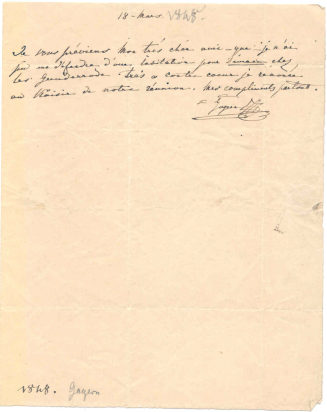 18 - Mars. 1848.
Je vous préviens mon très cher amie - que - je n'ai
pu me défendre d'une invitation pour demain chez
les très à contre coeur je renonce
au Plaisir de notre réunion. mes compliments partout.
1848. Gayron